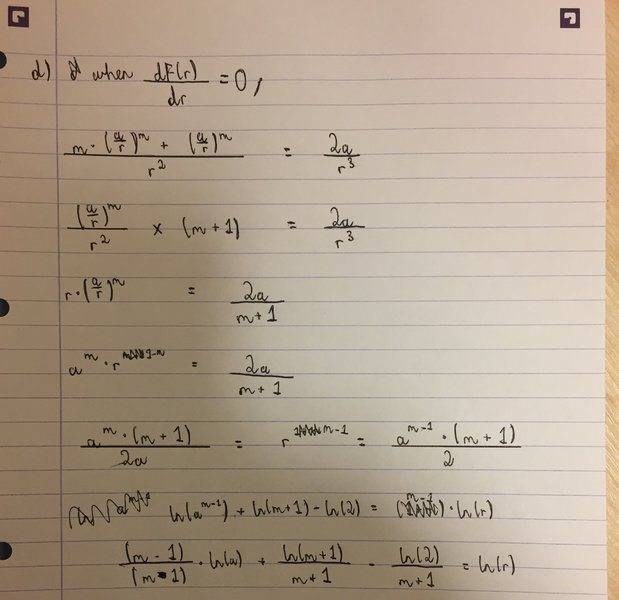 d) when dF(r)/dr = 0,
(m·(a/r)^m + (a/r)^m)/r^2 = 2a/r^3
(a/r)^m/r^2 × (m+1) = 2a/r^3
r·(a/r)^m = 2a/(m+1)
a^m · r^(1-m) = 2a/(m+1)
(a^m·(m+1))/2a = r^(m-1) = (a^(m-1)·(m+1))/2
ln(a^(m-1)) + ln(m+1) - ln(2) = (m-1)·ln(r)
(m-1)/(m-1)·ln(a) + ln(m+1)/(m+1) - ln(2)/(m+1) = ln(r)